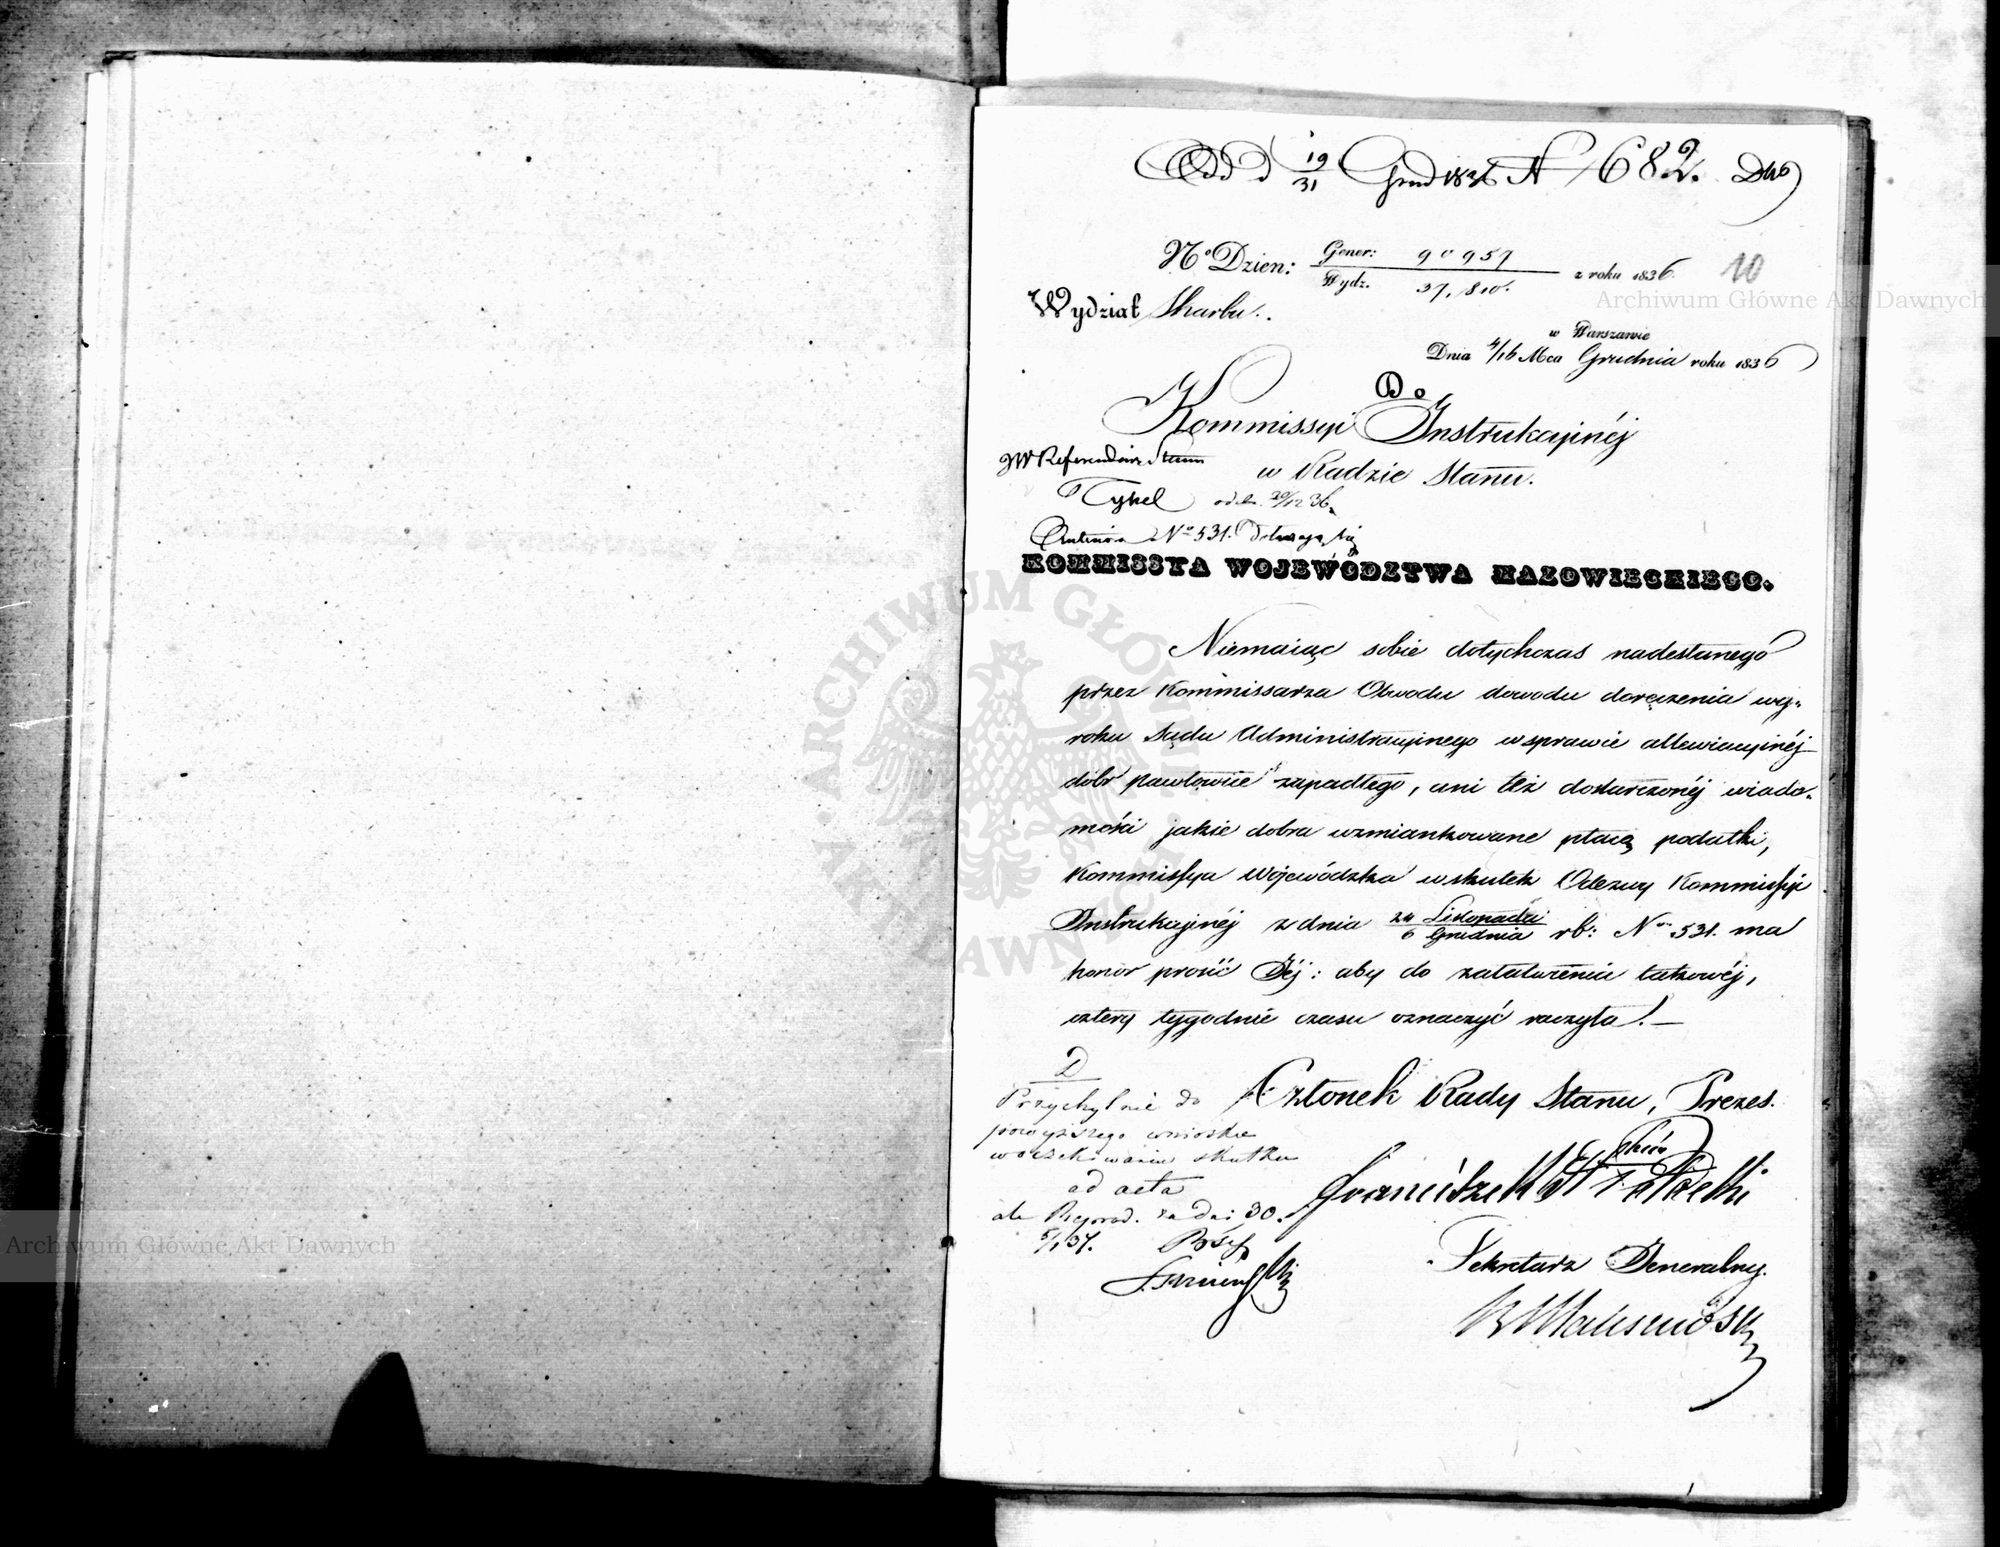 Odd d 19/31 Grud 1836 N 1682. Dtto
No Dzien: Gener: 90957
Wydz. 37,810. z roku 1836
10
Wydział Skarbu.
w Warszawie
Dnia 4/16 Mca Grudnia roku 1836
Do
Kommissyi Instrukcyinéj
w Radzie Stanu.
JW Referendarz Stanu
Tykel
od d. 20/12 36.
No 531. Dotycząca się
KOMMISSYA WOJEWÓDZTWA MAZOWIECKIEGO.
Niemaiąc sobie dotychczas nadesłanego
przez Kommissarza Obwodu dowodu doręczenia wy-
roku Sądu Administracyinego w sprawie allewiacyinéj
dóbr Pawłowice zapadłego, ani też dostarczonéj wiado-
mości jakie dobra wzmiankowane płacą podatki,
Kommissya Wojewódzka w skutek Odezwy Kommissyi
Instrukcyinéj z dnia 24 Listopada/6 Grudnia rb: No 531. ma
honor prosić Jéj: aby do załatwienia takowéj,
cztery tygodnie czasu oznaczyć raczyła. —
Członek Rady Stanu, Prezes.
D
Przychylnie do
powyższego wniosku
w oczekiwaniu skutku
ad acta
ale Reprod. za dni 30.
5/1 37.
Sekretarz Generalny.
Archiwum Główne Akt Dawnych
ARCHIWUM GŁÓWNE AKT DAWNYCH
Archiwum Główne Akt Dawnych